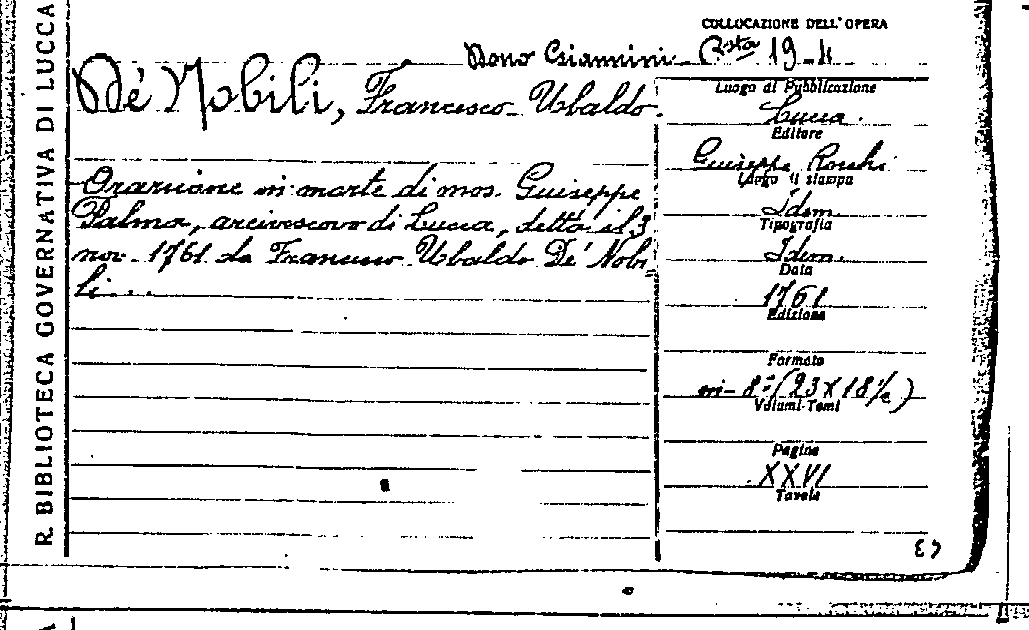 R. BIBLIOTECA GOVERNATIVA DI LUCCA
COLLOCAZIONE DELL' OPERA
Dono Giannini. Bsta 19-4
De' Nobili, Francesco Ubaldo.
Orazione in morte di mos. Guiseppe
Palma, arcivescovo di Lucca, detta il 3
nov. 1761 da Francesco Ubaldo De' Nobi-
li...
Luogo di Pubblicazione
Lucca.
Editore
Guiseppe Rocchi
Luogo di stampa
Idem.
Tipografia
Idem.
Data
1761
Edizione
Formato
in-8º (23 X 18½)
Volumi-Tomi
Pagine
XXVI
Tavole